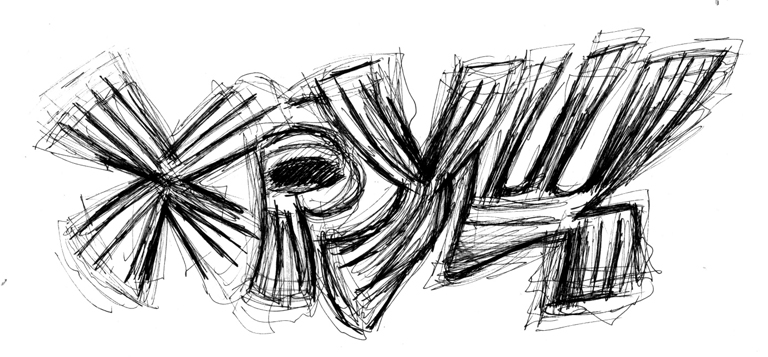 ХРУЩ